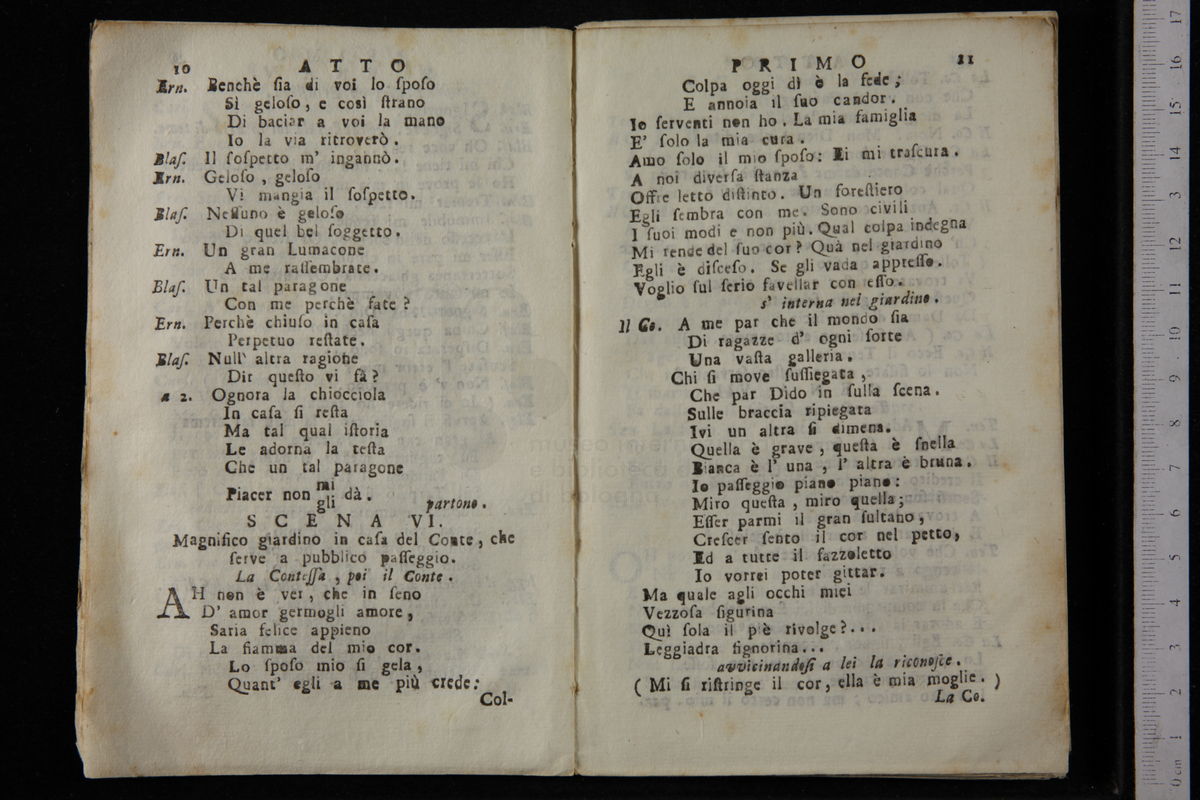 10 ATTO
Ern. Benchè ſia di voi lo ſpoſo
Sì geloſo, e così ſtrano
Di baciar a voi la mano
Io la via ritroverò.
Blaſ. Il ſoſpetto m' ingannò.
Ern. Geloſo, geloſo
Vi mangia il ſoſpetto.
Blaſ. Neſſuno è geloſo
Di quel bel ſoggetto.
Ern. Un gran Lumacone
A me raſſembrate.
Blaſ. Un tal paragone
Con me perchè fate?
Ern. Perchè chiuſo in caſa
Perpetuo reſtate.
Blaſ. Null' altra ragione
Dir queſto vi fà?
a 2. Ognora la chiocciola
In caſa ſi reſta
Ma tal qual iſtoria
Le adorna la teſta
Che un tal paragone
Piacer non mi dà.
gli partono.
SCENA VI.
Magnifico giardino in caſa del Conte, che
ſerve a pubblico paſſeggio.
La Conteſſa, poi il Conte.
AH non è ver, che in ſeno
D' amor germogli amore,
Saria felice appieno
La fiamma del mio cor.
Lo ſpoſo mio ſi gela,
Quant' egli a me più crede:
Col-
PRIMO 11
Colpa oggi dì è la fede;
E annoia il ſuo candor.
Io ſerventi non ho. La mia famiglia
E' ſolo la mia cura.
Amo ſolo il mio ſpoſo: Ei mi traſcura.
A noi diverſa ſtanza
Offre letto diſtinto. Un foreſtiero
Egli ſembra con me. Sono civili
I ſuoi modi e non più. Qual colpa indegna
Mi rende del ſuo cor? Quà nel giardino
Egli è diſceſo. Se gli vada appreſſo.
Voglio ſul ſerio favellar con eſſo.
s' interna nel giardino.
Il Co. A me par che il mondo ſia
Di ragazze d' ogni ſorte
Una vaſta galleria.
Chi ſi move ſuſſiegata,
Che par Dido in ſulla ſcena.
Sulle braccia ripiegata
Ivi un altra ſi dimena.
Quella è grave, queſta è ſnella
Bianca è l' una, l' altra è bruna.
Io paſſeggio piano piano:
Miro queſta, miro quella;
Eſſer parmi il gran ſultano,
Creſcer ſento il cor nel petto,
Ed a tutte il fazzoletto
Io vorrei poter gittar.
Ma quale agli occhi miei
Vezzoſa figurina
Quì ſola il piè rivolge?...
Leggiadra ſignorina...
avvicinandoſi a lei la riconoſce.
(Mi ſi riſtringe il cor, ella è mia moglie.)
La Co.